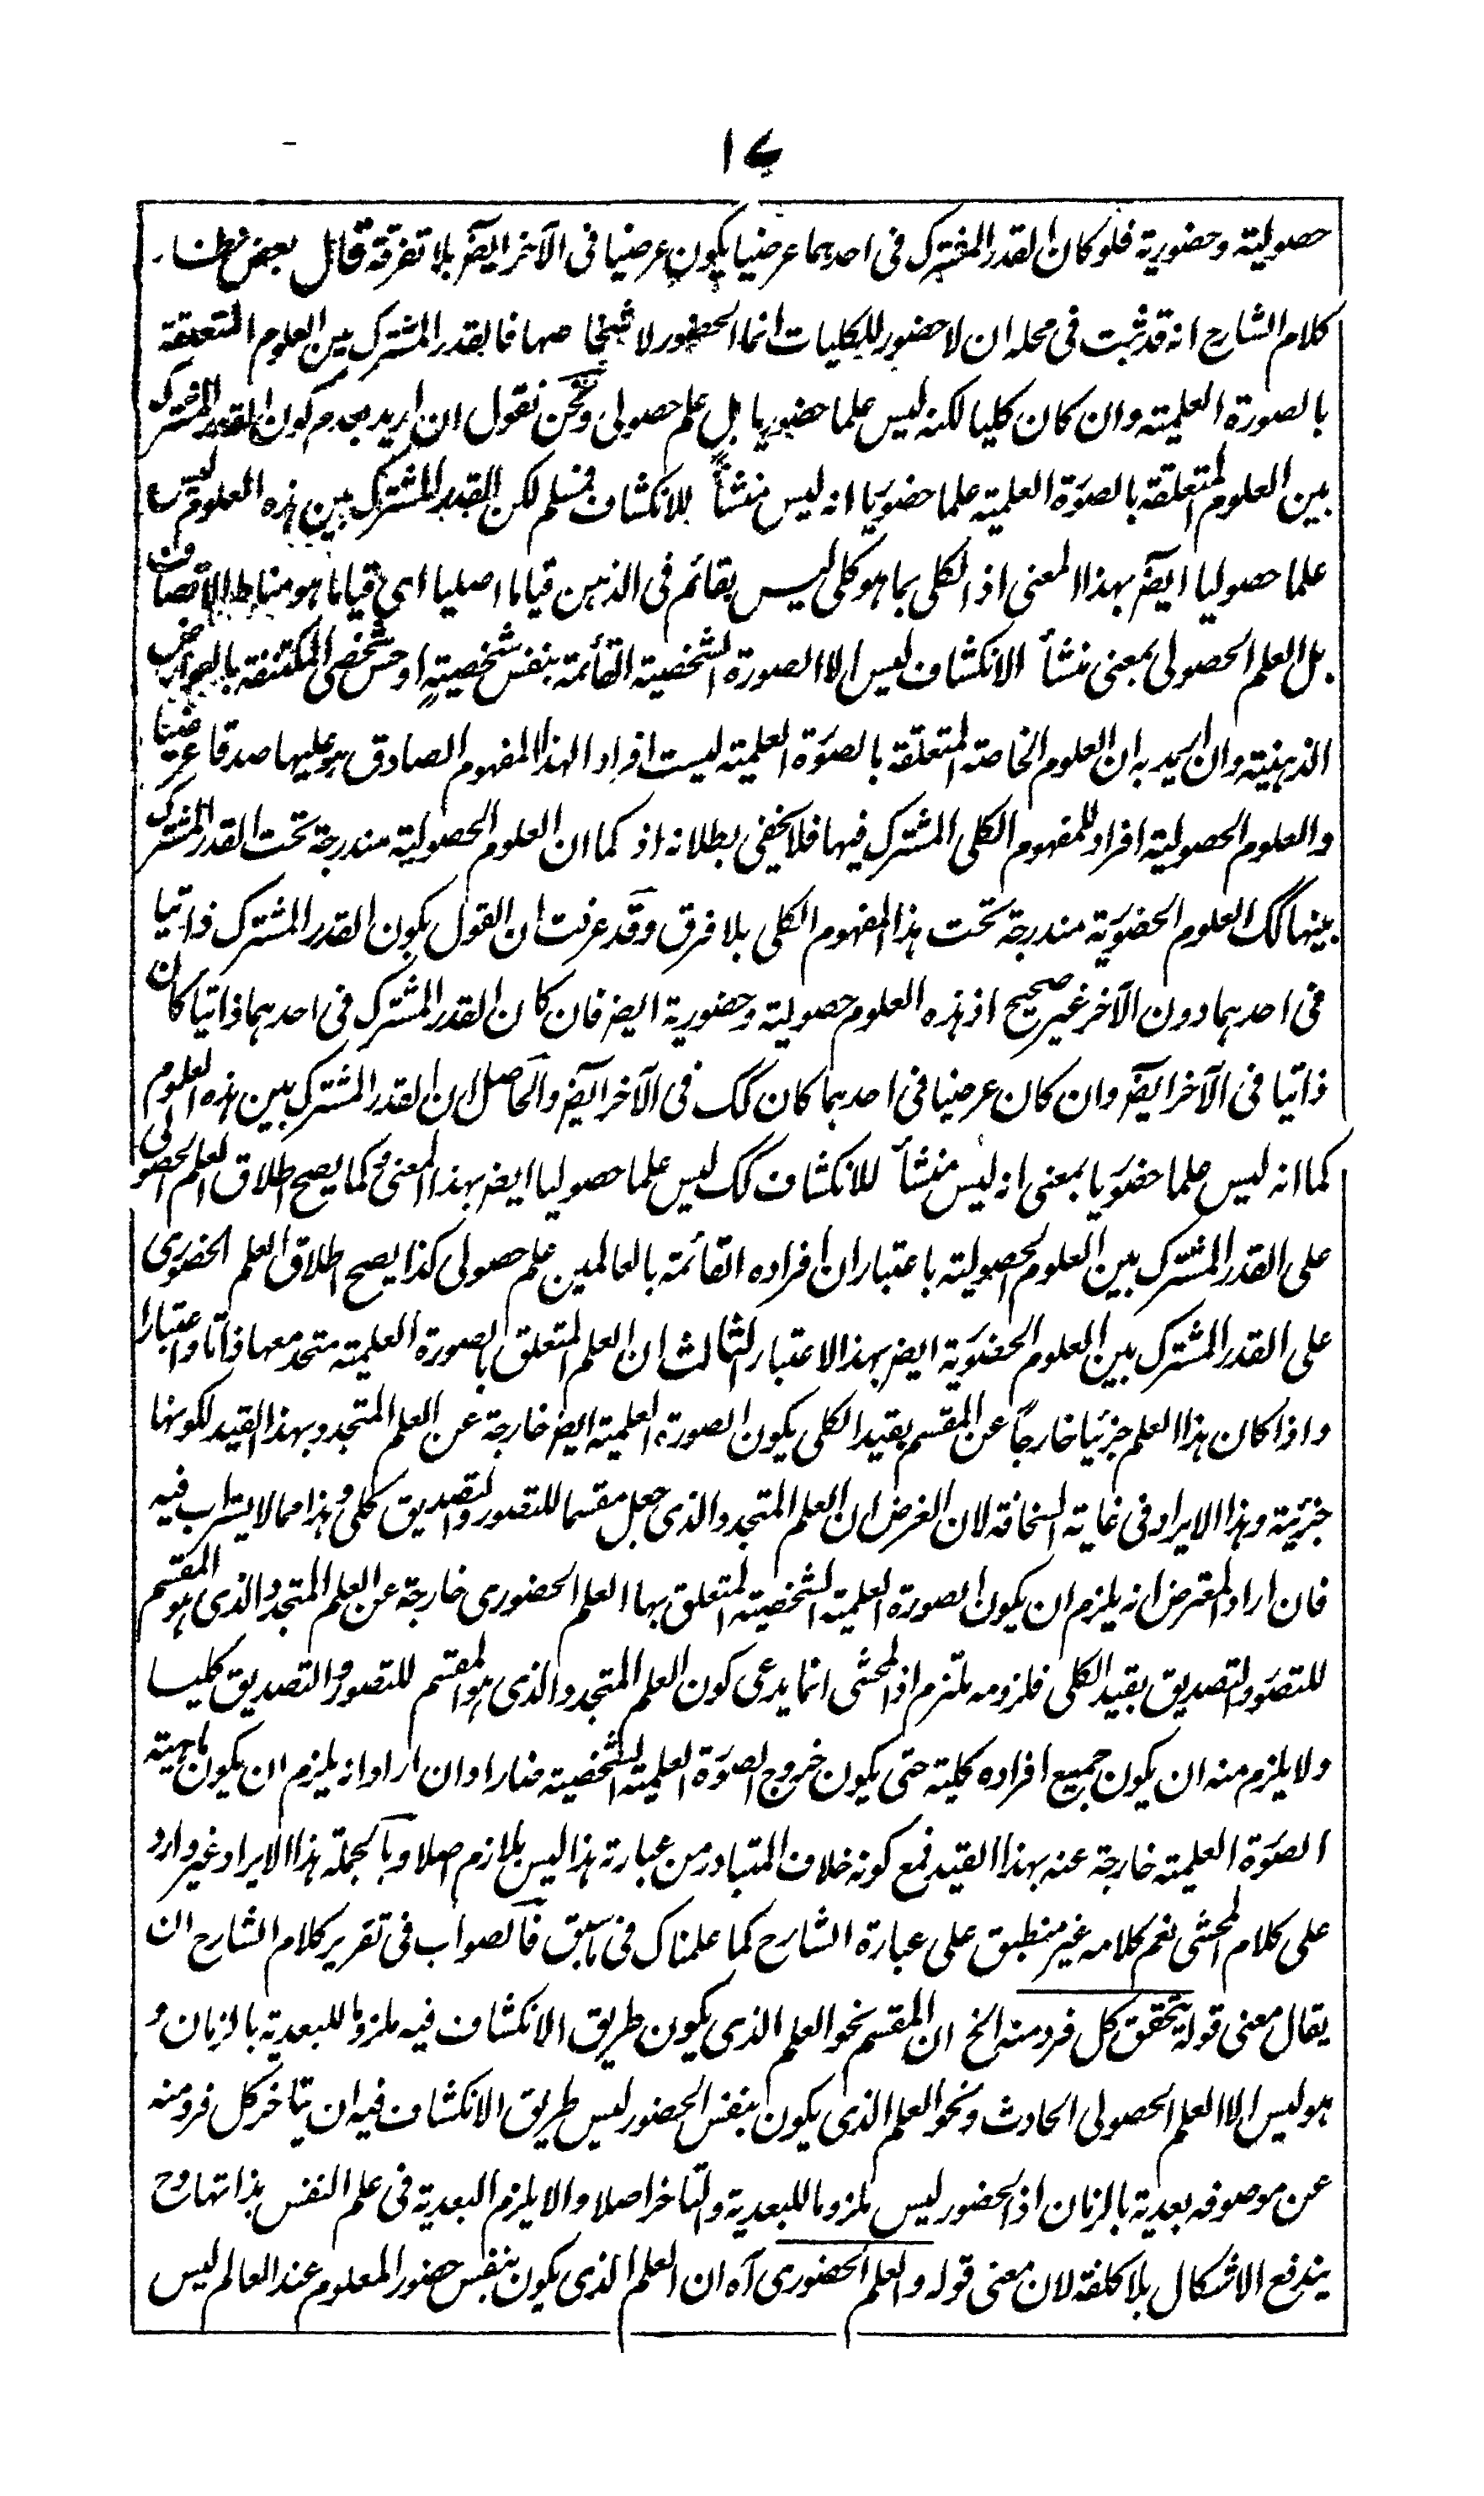 ١٧
حصولية وحضورية فلو كان القدر المشترك فى احدهما عرضيا يكون عرضيا فى الآخر ايضا بلا تفرقة قال بعض نظار
كلام الشارح انه قد ثبت فى محله ان لا حضور للكليات انما الحضور لاشخاصها فالقدر المشترك بين العلوم المتعلقة
بالصورة العلمية وان كان كليا لكنه ليس علما حضوريا بل علم حصولى ونحن نقول ان اريد بعدم كون القدر المشترك
بين العلوم المتعلقة بالصورة العلمية علما حضوريا انه ليس منشأ للانكشاف فمسلم لكن القدر المشترك بين هذه العلوم ليس
علما حصوليا ايضا بهذا المعنى اذ الكلى بما هو كلى ليس بقائم فى الذهن قياما اصليا اى قياما هو مناط الاتصاف
بل العلم الحصولى بمعنى منشأ الانكشاف ليس الا الصورة الشخصية القائمة بنفس شخصية او حس شخصى المكتنفة بالعوارض
الذهنية وان اريد به ان العلوم الخاصة المتعلقة بالصورة العلمية ليست افراد الهذا المفهوم الصادق هو عليها صدقا عرضيا
والعلوم الحصولية افراد للمفهوم الكلى المشترك فيها فلا يخفى بطلانه اذ كما ان العلوم الحصولية مندرجة تحت القدر المشترك
بينها كك العلوم الحضورية مندرجة تحت هذا المفهوم الكلى بلا فرق وقد عرفت ان القول بكون القدر المشترك ذاتيا
فى احدهما دون الآخر غير صحيح اذ هذه العلوم حصولية وحضورية ايضا فان كان القدر المشترك فى احدهما ذاتيا كان
ذاتيا فى الآخر ايضا وان كان عرضيا فى احدهما كان كك فى الآخر ايضا والحاصل ان القدر المشترك بين هذه العلوم
كما انه ليس علما حضوريا بمعنى انه ليس منشأ للانكشاف كك ليس علما حصوليا ايضا بهذا المعنى وكما يصح اطلاق العلم الحصولى
على القدر المشترك بين العلوم الحصولية باعتبار ان افراده القائمة بالعالمين علم حصولى كذا يصح اطلاق العلم الحضورى
على القدر المشترك بين العلوم الحضورية ايضا بهذا الاعتبار الثالث ان العلم المتعلق بالصورة العلمية متحد معها ذاتا واعتبارا
واذا كان هذا العلم جزئيا خارجا عن المقسم بقيد الكلى يكون الصورة العلمية ايضا خارجة عن العلم المتجدد بهذا القيد لكونها
جزئية وهذا الايراد فى غاية السخافة لان الغرض ان العلم المتجدد الذى جعل مقسما للتصور والتصديق كلى وهذا مما لا يستراب فيه
فان اراد المعترض انه يلزم ان يكون الصورة العلمية الشخصية المتعلق بها العلم الحضورى خارجة عن العلم المتجدد الذى هو المقسم
للتصور والتصديق بقيد الكلى فلزومه ملتزم اذ المحشى انما يدعى كون العلم المتجدد الذى هو المقسم للتصور والتصديق كليا
ولا يلزم منه ان يكون جميع افراده كلية حتى يكون خروج الصورة العلمية الشخصية ضارا وان اراد انه يلزم ان يكون ماهية
الصورة العلمية خارجة عنه بهذا القيد فمع كونه خلاف المتبادر من عبارة هذا ليس بلازم اصلا وبالجملة هذا الايراد غير وارد
على كلام المحشى نعم كلامه غير منطبق على عبارة الشارح كما علمناك فى ما سبق فالصواب فى تقرير كلام الشارح ان
يقال معنى قوله يتحقق كل فرد منه الخ ان المقسم نحو العلم الذى يكون طريق الانكشاف فيه ملزوما للبعدية بالزمان و
هو ليس الا العلم الحصولى الحادث ونحو العلم الذى يكون بنفس الحضور ليس طريق الانكشاف فيه ان يتاخر كل فرد منه
عن موصوفه بعدية بالزمان اذ الحضور ليس ملزوما للبعدية والتاخر اصلا والا يلزم البعدية فى علم النفس بذاتها وح
يندفع الاشكال بلا كلفة لان معنى قوله والعلم الحضورى آه ان العلم الذى يكون بنفس حضور المعلوم عند العالم ليس